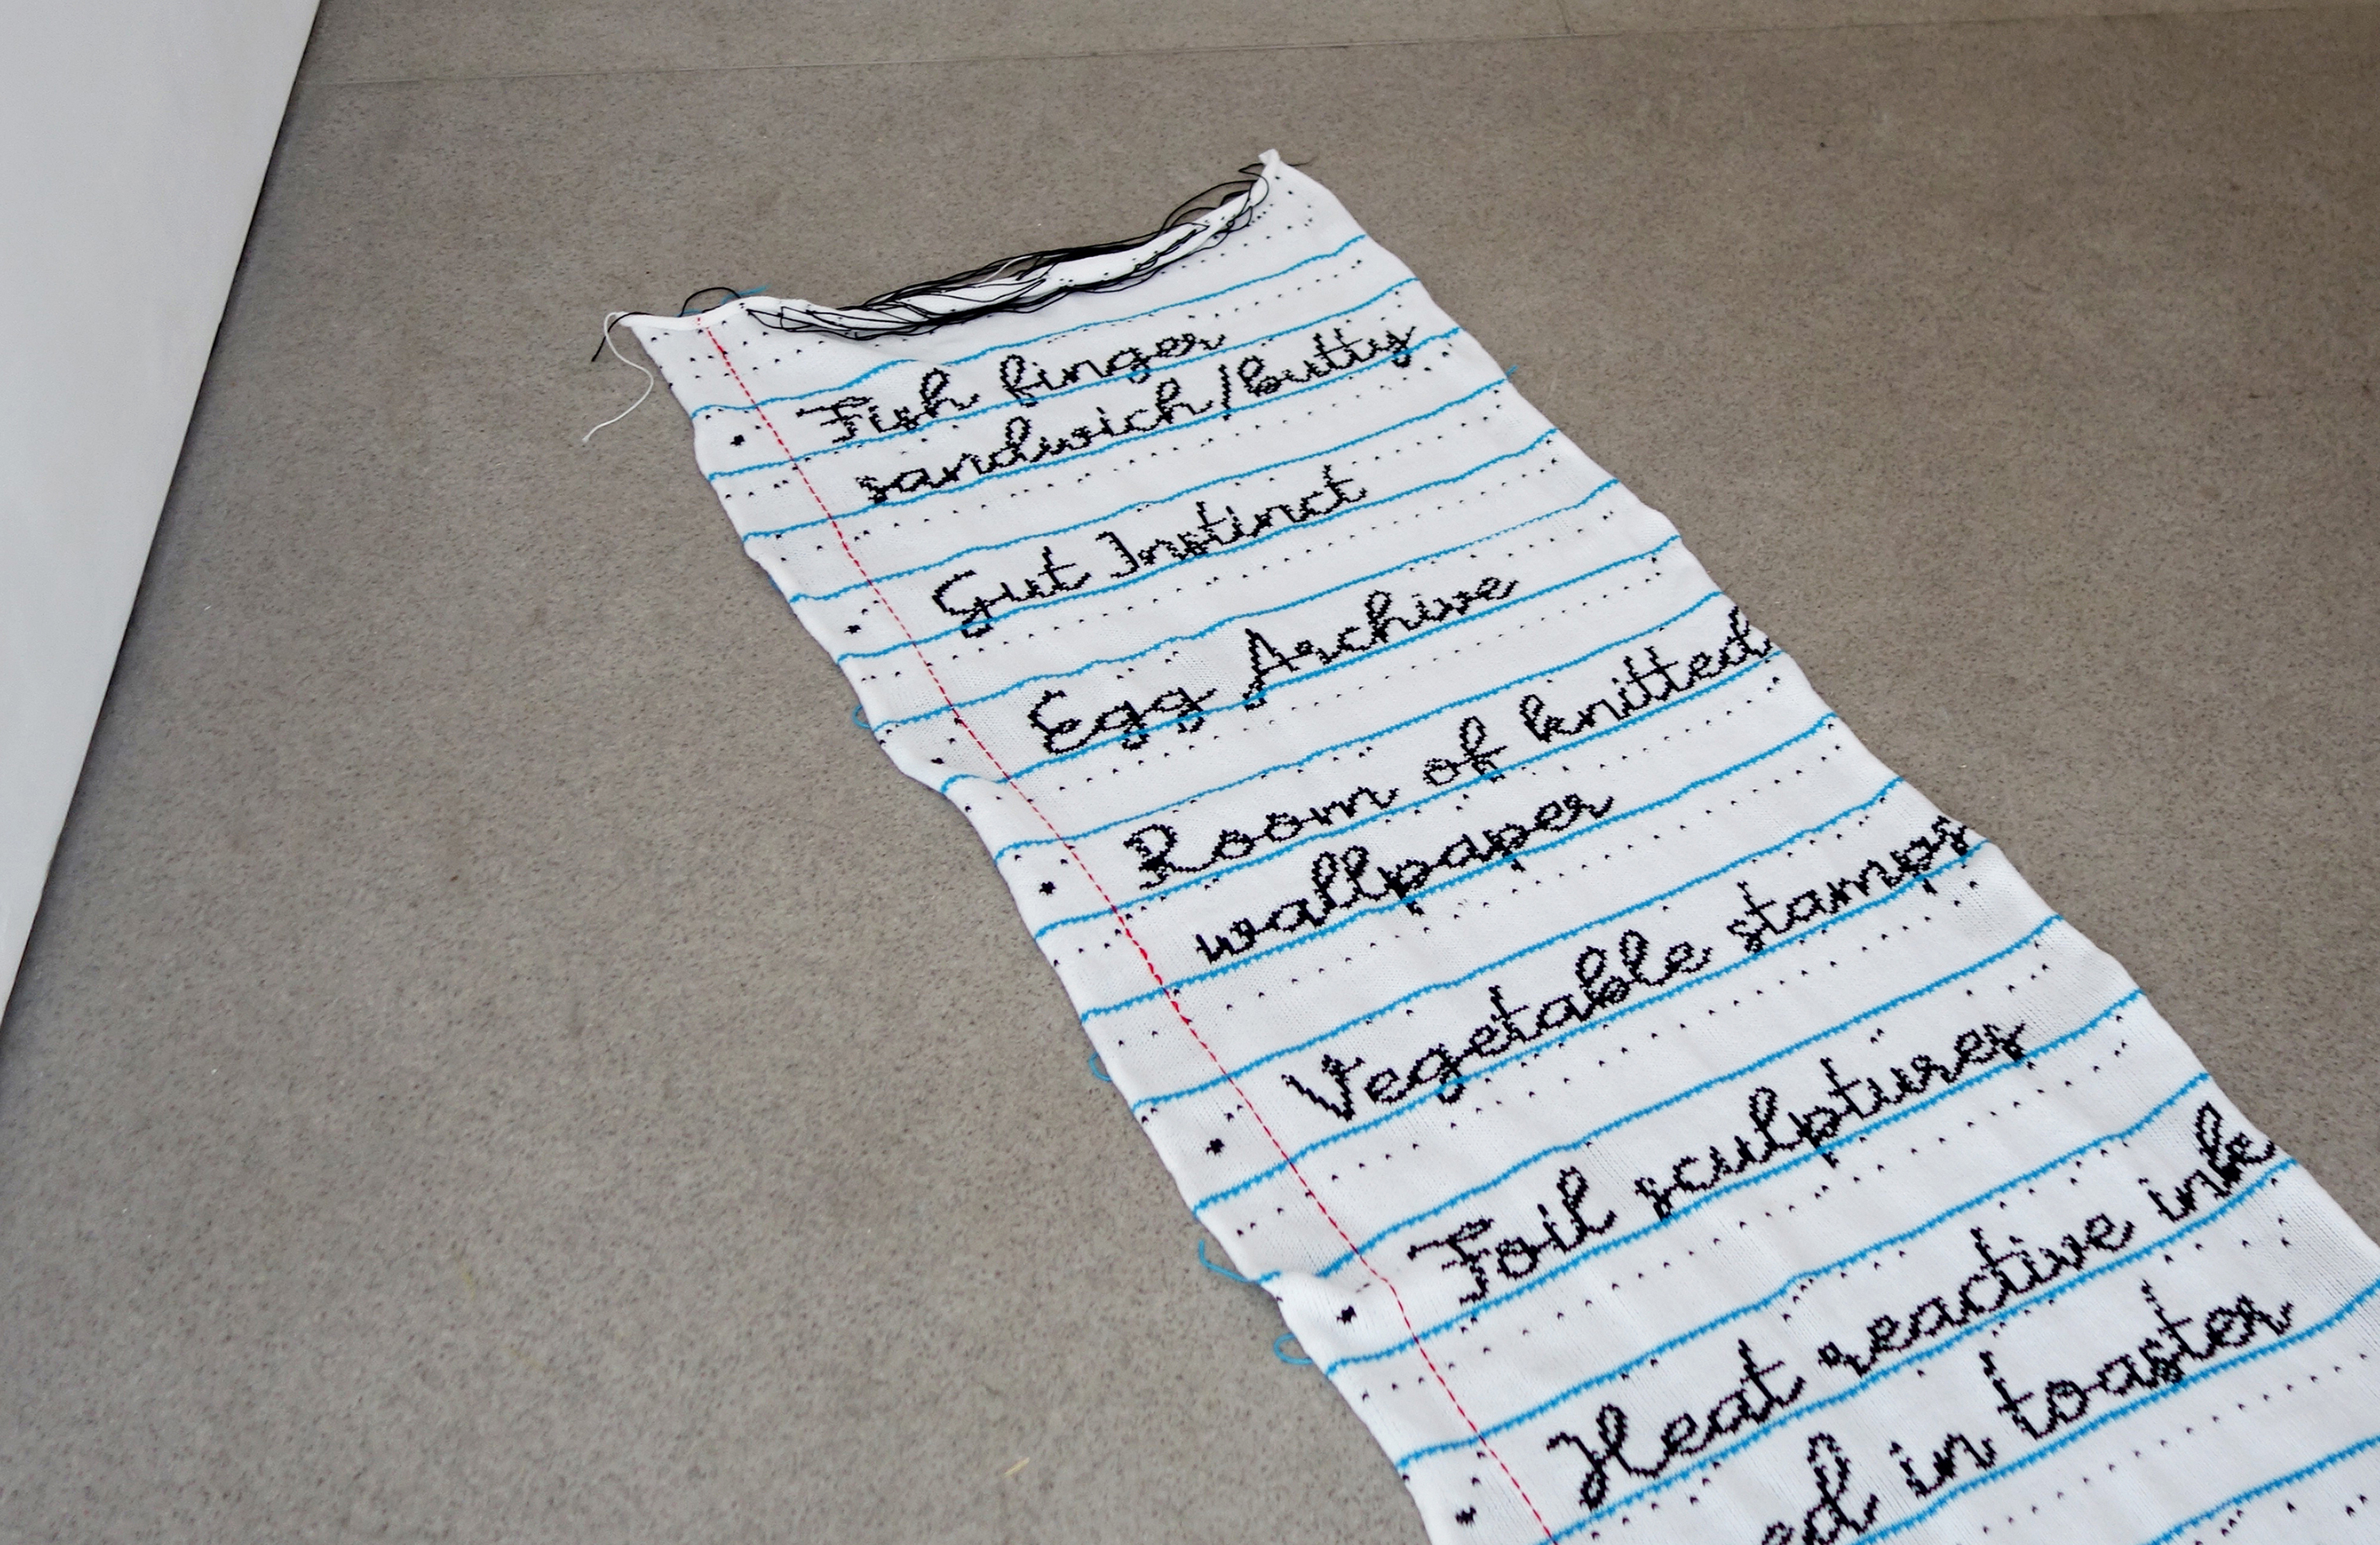 Fish finger
sandwich/butty
Gut Instinct
Egg Archive
Room of knitted
wallpaper
Vegetable stamps
Foil sculptures
Heat reactive ink
in toaster